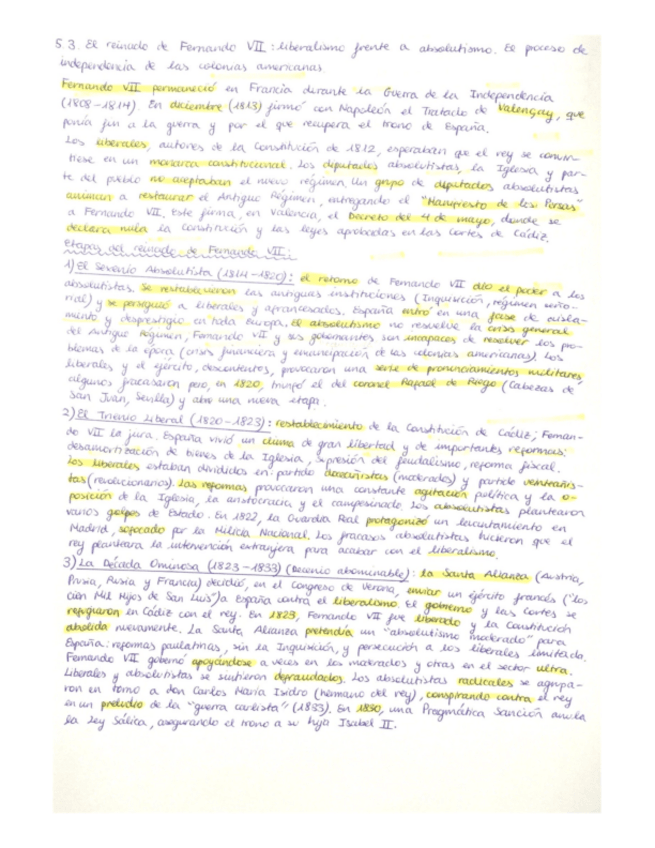 5.3. El reinado de Fernando VII: liberalismo frente a absolutismo. El proceso de
independencia de las colonias americanas.
Fernando VII permaneció en Francia durante la Guerra de la Independencia
(1808-1814) En diciembre (1813) firmó con Napoleón el Tratado de Valençay, que
ponía fin a la guerra y por el que recupera el trono de España.
Los liberales, autores de la Constitución de 1812, esperaban que el rey se convir-
tiese en un monarca constitucional. Los diputados absolutistas, la Iglesia y par-
te del pueblo no aceptaban el nuevo régimen. Un grupo de diputados absolutistas
animan a restaurar el Antiguo Régimen, entregando el "Manifiesto de los Persas"
a Fernando VII. Este firma, en Valencia, el Decreto del 4 de mayo, donde se
declara nula la Constitución y las leyes aprobadas en las Cortes de Cádiz.
Etapas del reinado de Fernando VII:
1) El Sexenio Absolutista (1814-1820): el retorno de Fernando VII dio el poder a los
absolutistas. Se restablecieron las antiguas instituciones (Inquisición, régimen seño-
rial) y se persiguió a liberales y afrancesados. España entró en una fase de aisla-
miento y desprestigio en toda Europa. El absolutismo no resuelve la crisis general
del Antiguo Régimen, Fernando VII y sus gobernantes son incapaces de resolver los pro-
blemas de la época (crisis financiera y emancipación de las colonias americanas). Los
liberales y el ejército, descontentos, provocaron una serie de pronunciamientos militares,
algunos fracasaron pero, en 1820, triunfó el del coronel Rafael de Riego (Cabezas de
San Juan, Sevilla) y abre una nueva etapa.
2) El Trienio Liberal (1820-1823): restablecimiento de la Constitución de Cádiz; Fernan-
do VII la jura. España vivió un clima de gran libertad y de importantes reformas:
desamortización de bienes de la Iglesia, supresión del feudalismo, reforma fiscal.
Los liberales estaban divididos en: partido doceañistas (moderados) y partido veinteañis-
tas (revolucionarios). Las reformas provocaron una constante agitación política y la o-
posición de la Iglesia, la aristocracia y el campesinado. Los absolutistas plantearon
varios golpes de Estado. En 1822, la Guardia Real protagonizó un levantamiento en
Madrid, sofocado por la Milicia Nacional. Los fracasos absolutistas hicieron que el
rey planteara la intervención extranjera para acabar con el liberalismo.
3) La Década Ominosa (1823-1833) (Decenio abominable): la Santa Alianza (Austria,
Prusia, Rusia y Francia) decidió, en el Congreso de Verona, enviar un ejército francés ("los
Cien Mil Hijos de San Luis") a España contra el liberalismo. El gobierno y las Cortes se
refugiaron en Cádiz con el rey. En 1823, Fernando VII fue liberado y la Constitución
abolida nuevamente. La Santa Alianza pretendía un "absolutismo moderado" para
España: reformas paulatinas, sin la Inquisición, y persecución a los liberales limitada.
Fernando VII gobernó apoyándose a veces en los moderados y otras en el sector ultra.
Liberales y absolutistas se sintieron defraudados. Los absolutistas radicales se agrupa-
ron en torno a don Carlos María Isidro (hermano del rey), conspirando contra el rey
en un preludio de la "guerra carlista" (1833). En 1830, una Pragmática Sanción anula
la Ley Sálica, asegurando el trono a su hija Isabel II.